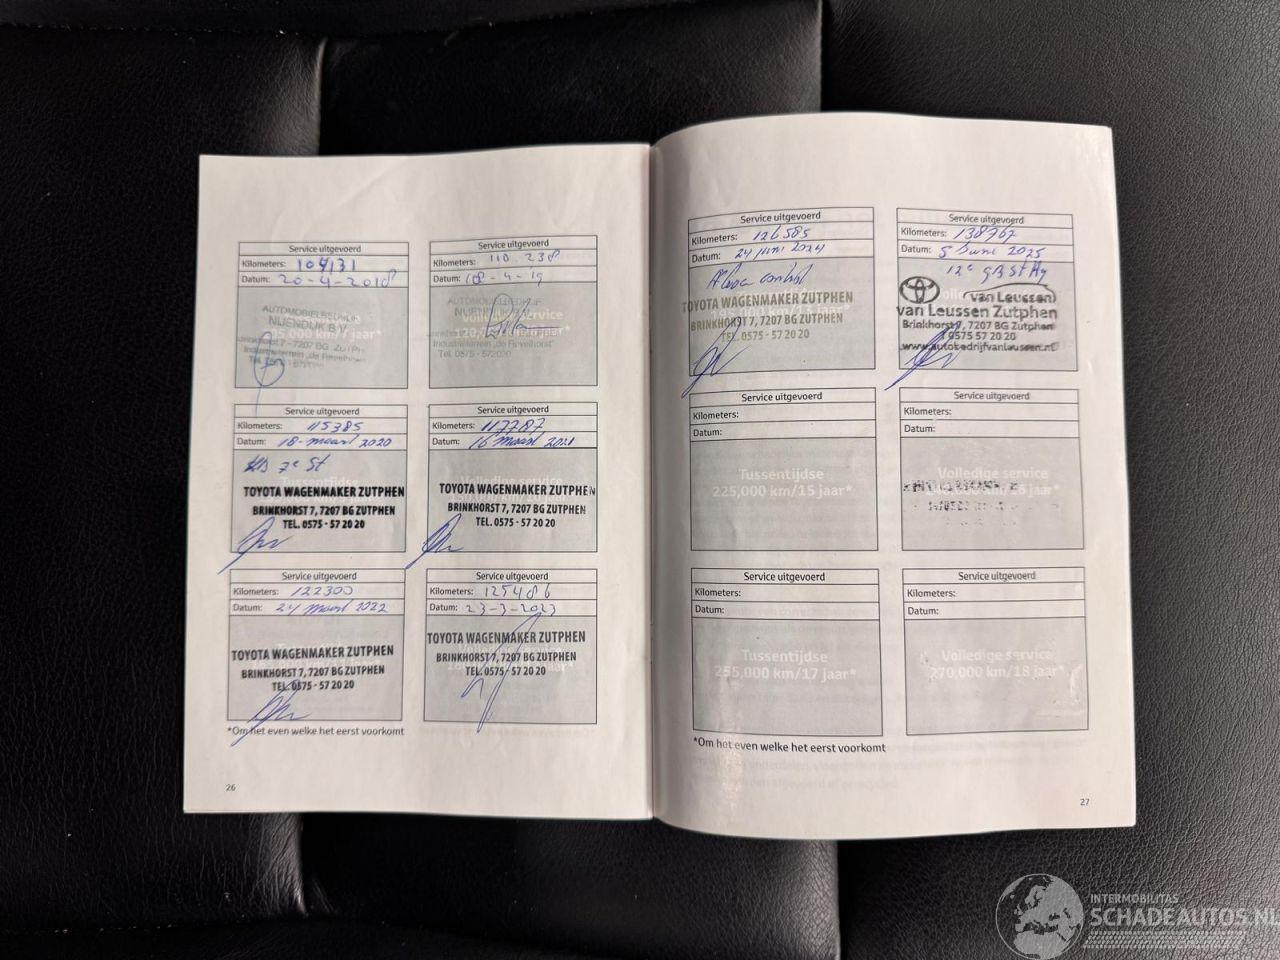 Service uitgevoerd
Kilometers: 104131
Datum: 20-4-2018
AUTOMOBIELBEDRIJF
NIJENDIJK B.V.
7207 BG
Industrieterrein „de Revelhorst"
Service uitgevoerd
Kilometers: 110.238
Datum: 08-4-19
AUTOMOBIELBEDRIJF
Industrieterrein „de Revelhorst"
Tel. 0575 - 572020
Service uitgevoerd
Kilometers: 115385
Datum: 18-maart 2020
7e St
TOYOTA WAGENMAKER ZUTPHEN
BRINKHORST 7, 7207 BG ZUTPHEN
TEL. 0575 - 57 20 20
Service uitgevoerd
Kilometers: 117787
Datum: 16 maart 2021
TOYOTA WAGENMAKER ZUTPHEN
BRINKHORST 7, 7207 BG ZUTPHEN
TEL. 0575 - 57 20 20
Service uitgevoerd
Kilometers: 122300
Datum: 24 maart 2022
TOYOTA WAGENMAKER ZUTPHEN
BRINKHORST 7, 7207 BG ZUTPHEN
TEL. 0575 - 57 20 20
Service uitgevoerd
Kilometers: 125486
Datum: 23-3-2023
TOYOTA WAGENMAKER ZUTPHEN
BRINKHORST 7, 7207 BG ZUTPHEN
TEL. 0575 - 57 20 20
*Om het even welke het eerst voorkomt
26
Service uitgevoerd
Kilometers: 126585
Datum: 24 juni 2024
195,000 km/13 jaar*
TOYOTA WAGENMAKER ZUTPHEN
BRINKHORST 7, 7207 BG ZUTPHEN
TEL. 0575 - 57 20 20
Service uitgevoerd
Kilometers: 138767
Datum: 5 Juni 2025
12e
van Leussen
van Leussen Zutphen
Brinkhorst 7, 7207 BG Zutphen
0575 57 20 20
www.autobedrijfvanleussen.nl
Service uitgevoerd
Kilometers:
Datum:
Tussentijdse
225,000 km/15 jaar*
Service uitgevoerd
Kilometers:
Datum:
Volledige service
Service uitgevoerd
Kilometers:
Datum:
Tussentijdse
255,000 km/17 jaar*
Service uitgevoerd
Kilometers:
Datum:
Volledige service
270,000 km/18 jaar*
*Om het even welke het eerst voorkomt
27
INTERMOBILITAS
SCHADEAUTOS.NL